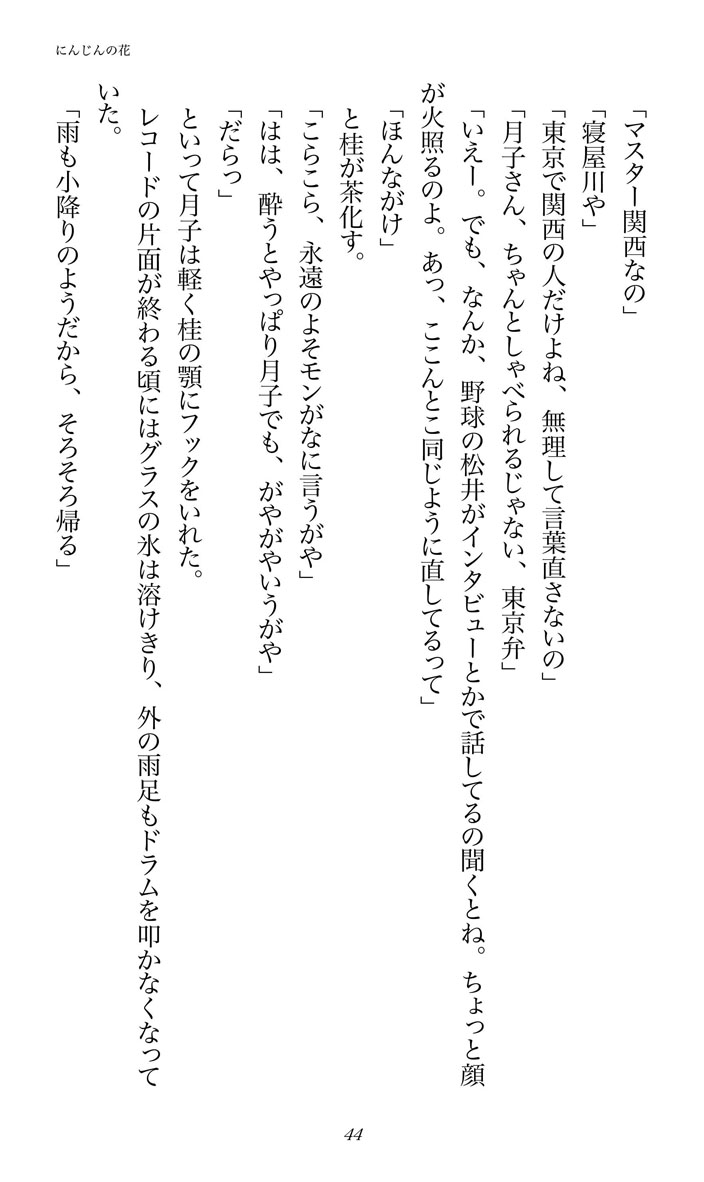 にんじんの花
「マスター関西なの」
「寝屋川や」
「東京で関西の人だけよね、無理して言葉直さないの」
「月子さん、ちゃんとしゃべられるじゃない、東京弁」
「いえー。でも、なんか、野球の松井がインタビューとかで話してるの聞くとね。ちょっと顔
が火照るのよ。あっ、ここんとこ同じように直してるって」
「ほんながけ」
と桂が茶化す。
「こらこら、永遠のよそモンがなに言うがや」
「はは、酔うとやっぱり月子でも、がやがやいうがや」
「だらっ」
といって月子は軽く桂の顎にフックをいれた。
レコードの片面が終わる頃にはグラスの氷は溶けきり、外の雨足もドラムを叩かなくなって
いた。
「雨も小降りのようだから、そろそろ帰る」
44